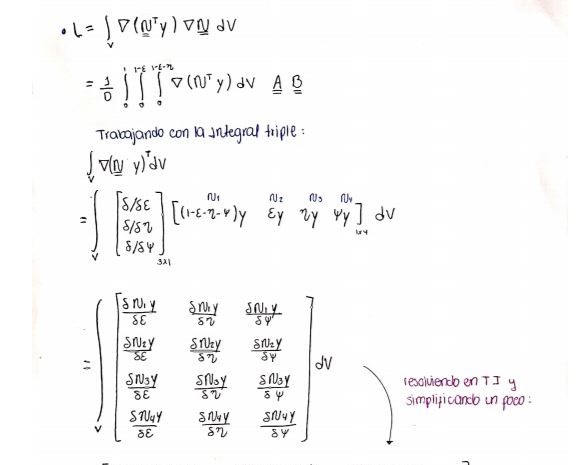 • L = ∫_V ∇(N^T y) ∇N dV
= 1/D ∫_0^1 ∫_0^{1-ε} ∫_0^{1-ε-η} ∇(N^T y) dV A B
Trabajando con la integral triple:
∫_V ∇(N y)^T dV
= ∫_V [δ/δε δ/δη δ/δψ]_{3x1} [(1-ε-η-ψ)y εy ηy ψy]_{1x4} dV
N1 N2 N3 N4
= ∫_V [δN1y/δε δN1y/δη δN1y/δψ
δN2y/δε δN2y/δη δN2y/δψ
δN3y/δε δN3y/δη δN3y/δψ
δN4y/δε δN4y/δη δN4y/δψ] dV
resolviendo en TI y
simplificando un poco: